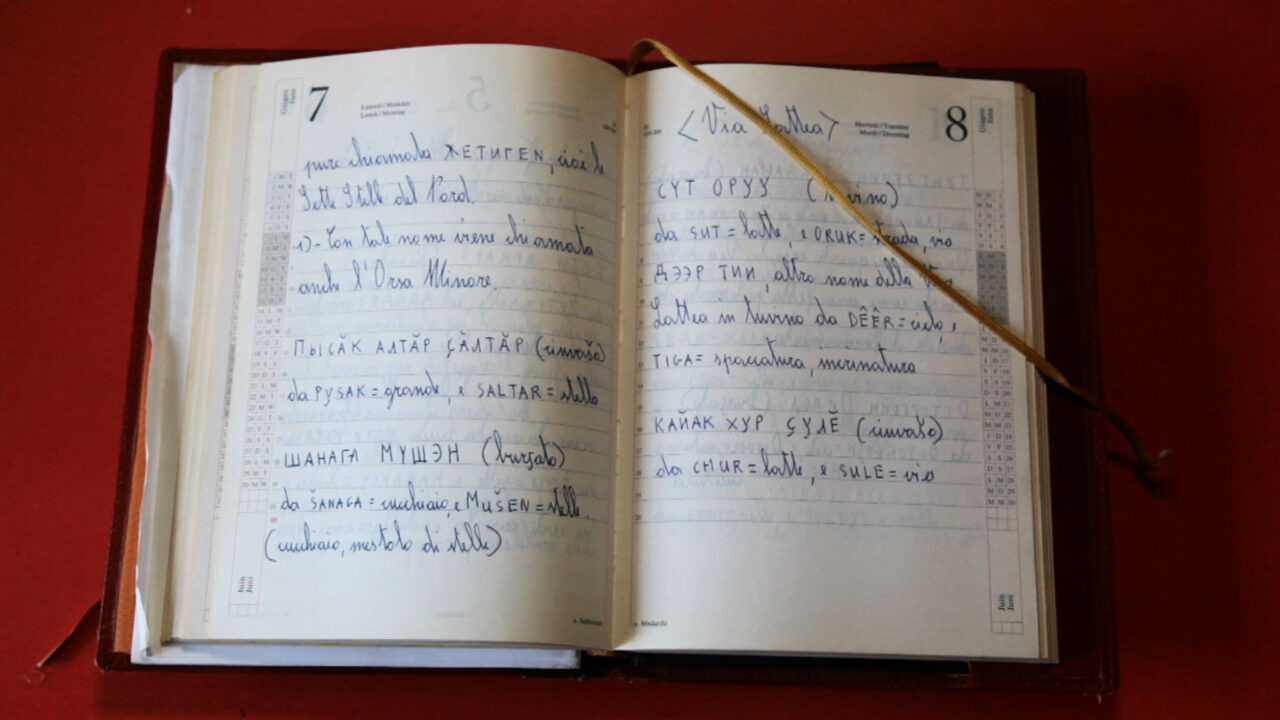 7
Lunedì/Monday
Lundi/Montag
Giugno
Juni
pure chiamata ЖЕТИГЕN, cioè le
Sette Stelle del Nord.
1)- Con tale nome viene chiamata
anche l'Orsa Minore.
ПЫСĂК АЛТĂР ÇĂЛТĂР (ciuvašo)
da PYSAK = grande, e SALTAR = stella
ШАНАГА МУШЭН (burjato)
da ŠANAGA = cucchiaio, e MUŠEN = stelle.
(cucchiaio, mestolo di stelle)
Juin
Juni
s. Sabiniano
8
Martedì/Tuesday
Mardi/Dienstag
Giugno
Juni
<Via Lattea>
СҮТ ОРУУ
da SUT = latte, e ORUK = strada, via
ДЭЭР ТИИ, altro nome della Via
Lattea in tuvino da DÊÊR = cielo, e
TIGA = spaccatura, incrinatura
КАЙАК ХУР ÇУЛĔ (ciuvašo)
da CHUR = latte, e SULE = via
Juin
Juni
s. Medardo